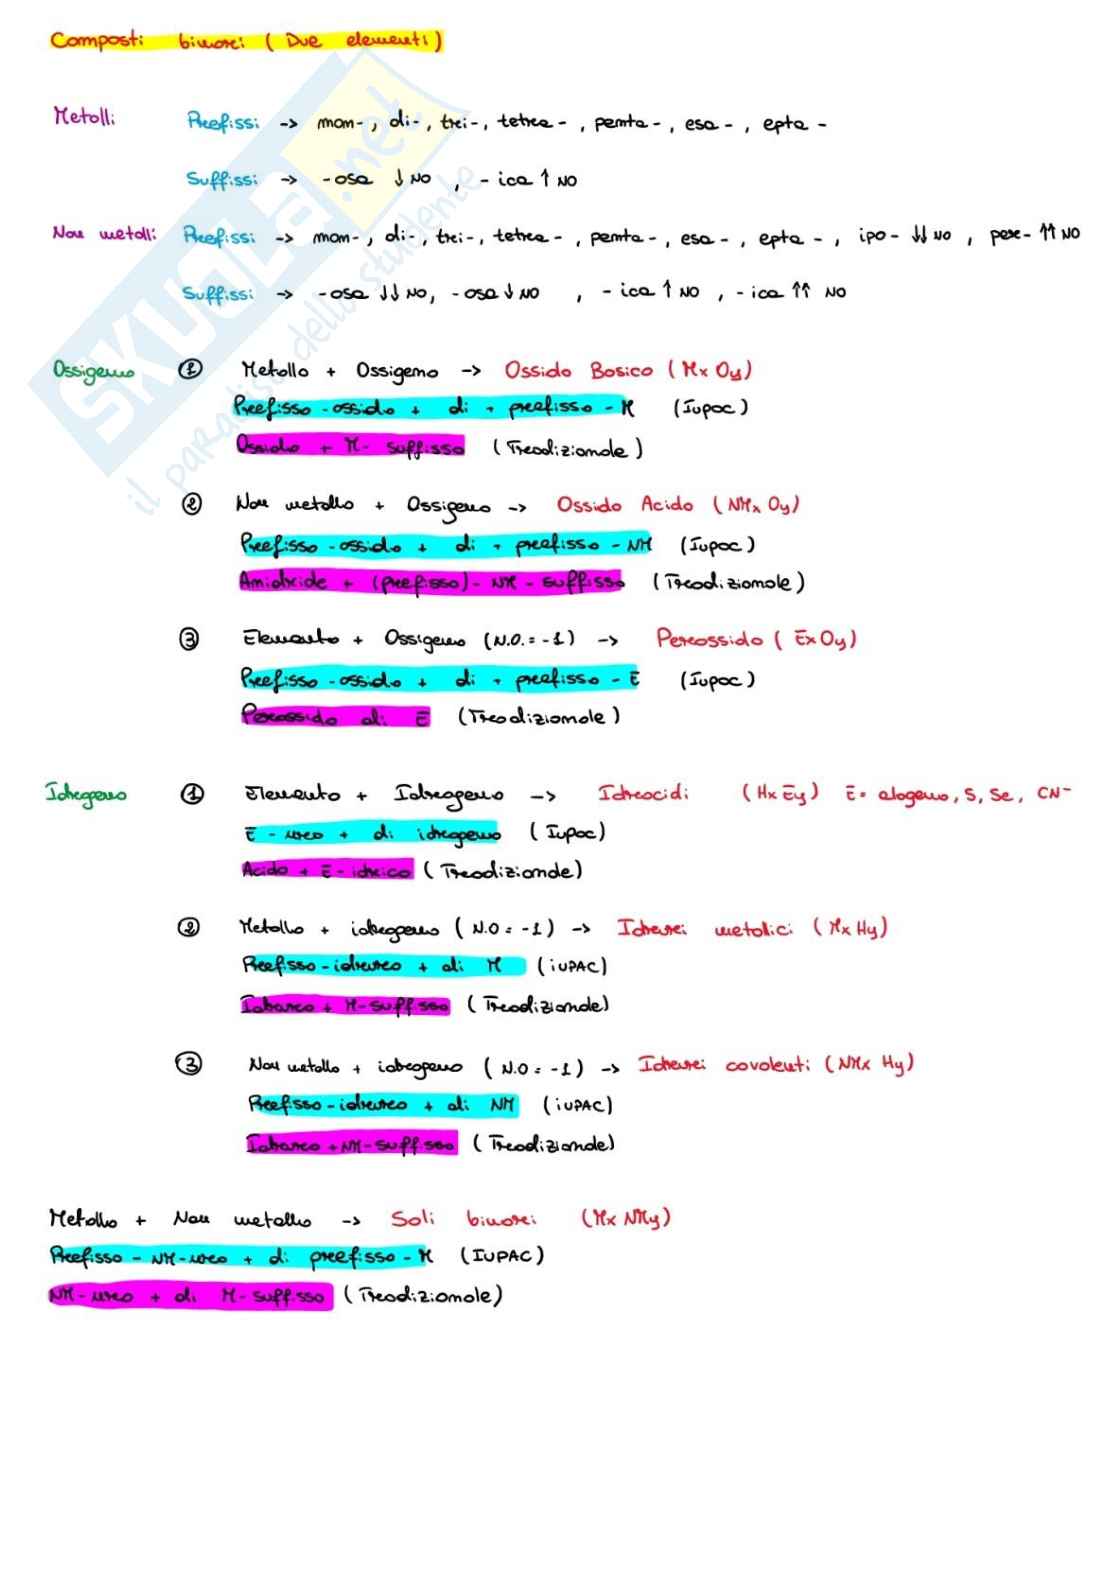 Composti binari ( Due elementi )
Metalli Prefissi -> mon-, di-, tri-, tetra-, penta-, esa-, epta-
Suffissi -> -osa ↓ NO, -ica ↑ NO
Non metalli Prefissi -> mon-, di-, tri-, tetra-, penta-, esa-, epta-, ipo- ↓↓ NO, per- ↑↑ NO
Suffissi -> -osa ↓↓ NO, -osa ↓ NO, -ica ↑ NO, -ica ↑↑ NO
Ossigeno ① Metallo + Ossigeno -> Ossido Basico ( Mx Oy)
Prefisso-ossido + di + prefisso-M (Iupac)
Ossido + M-suffisso (Tradizionale)
② Non metallo + Ossigeno -> Ossido Acido ( NMx Oy)
Prefisso-ossido + di + prefisso-NM (Iupac)
Anidride + (prefisso)-NM-suffisso (Tradizionale)
③ Elemento + Ossigeno (N.O. = -1) -> Perossido ( Ex Oy)
Prefisso-ossido + di + prefisso-E (Iupac)
Perossido di E (Tradizionale)
Idrogeno ① Elemento + Idrogeno -> Idracidi (Hx Ey) E= alogeno, S, Se, CN-
E-uro + di idrogeno (Iupac)
Acido + E-idrico (Tradizionale)
② Metallo + idrogeno (N.O = -1) -> Idruri metalici (Mx Hy)
Prefisso-idruro + di M (iUPAC)
Idruro + M-suffisso (Tradizionale)
③ Non metallo + idrogeno (N.O = -1) -> Idruri covalenti (NMx Hy)
Prefisso-idruro + di NM (iUPAC)
Idruro + NM-suffisso (Tradizionale)
Metallo + Non metallo -> Sali binari (Mx NMy)
Prefisso-NM-uro + di prefisso-M (IUPAC)
NM-uro + di M-suffisso (Tradizionale)
SKUOLA.net
il paradiso dello studente